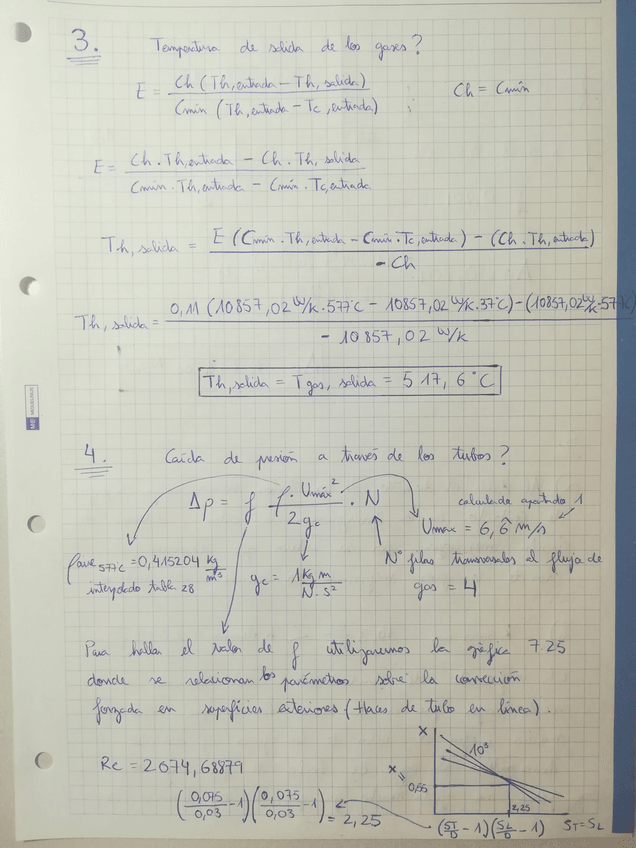 3. Temperatura de salida de los gases?
E = Ch (Th, entrada - Th, salida) / Cmín (Th, entrada - Tc, entrada) ; Ch = Cmín
E = Ch · Th, entrada - Ch · Th, salida / Cmín · Th, entrada - Cmín · Tc, entrada
Th, salida = E (Cmín · Th, entrada - Cmín · Tc, entrada) - (Ch · Th, entrada) / - Ch
Th, salida = 0,11 (10857,02 W/k · 577°C - 10857,02 W/k · 37°C) - (10857,02 W/k · 577°C / - 10857,02 W/k
Th, salida = T gas, salida = 517,6°C
MB
4. Caída de presión a través de los tubos?
Δp = f ρ · Umáx² / 2gc · N
calculada apartado 1
Umax = 6,6̂ m/s
ρaire 577°C = 0,415204 kg/m³
interpolado tabla 28
gc = 1 kg m / N · s²
Nº filas transversales al flujo de
gas = 4
Para hallar el valor de f utilizaremos la gráfica 7.25
donde se relacionan los parámetros sobre la convección
forzada en superficies exteriores (Haces de tubo en línea).
Re = 2074,68879
x
10³
x = 0,55
2,25
(0,075/0,03 - 1)(0,075/0,03 - 1) = 2,25
(ST/D - 1)(SL/D - 1) ST = SL